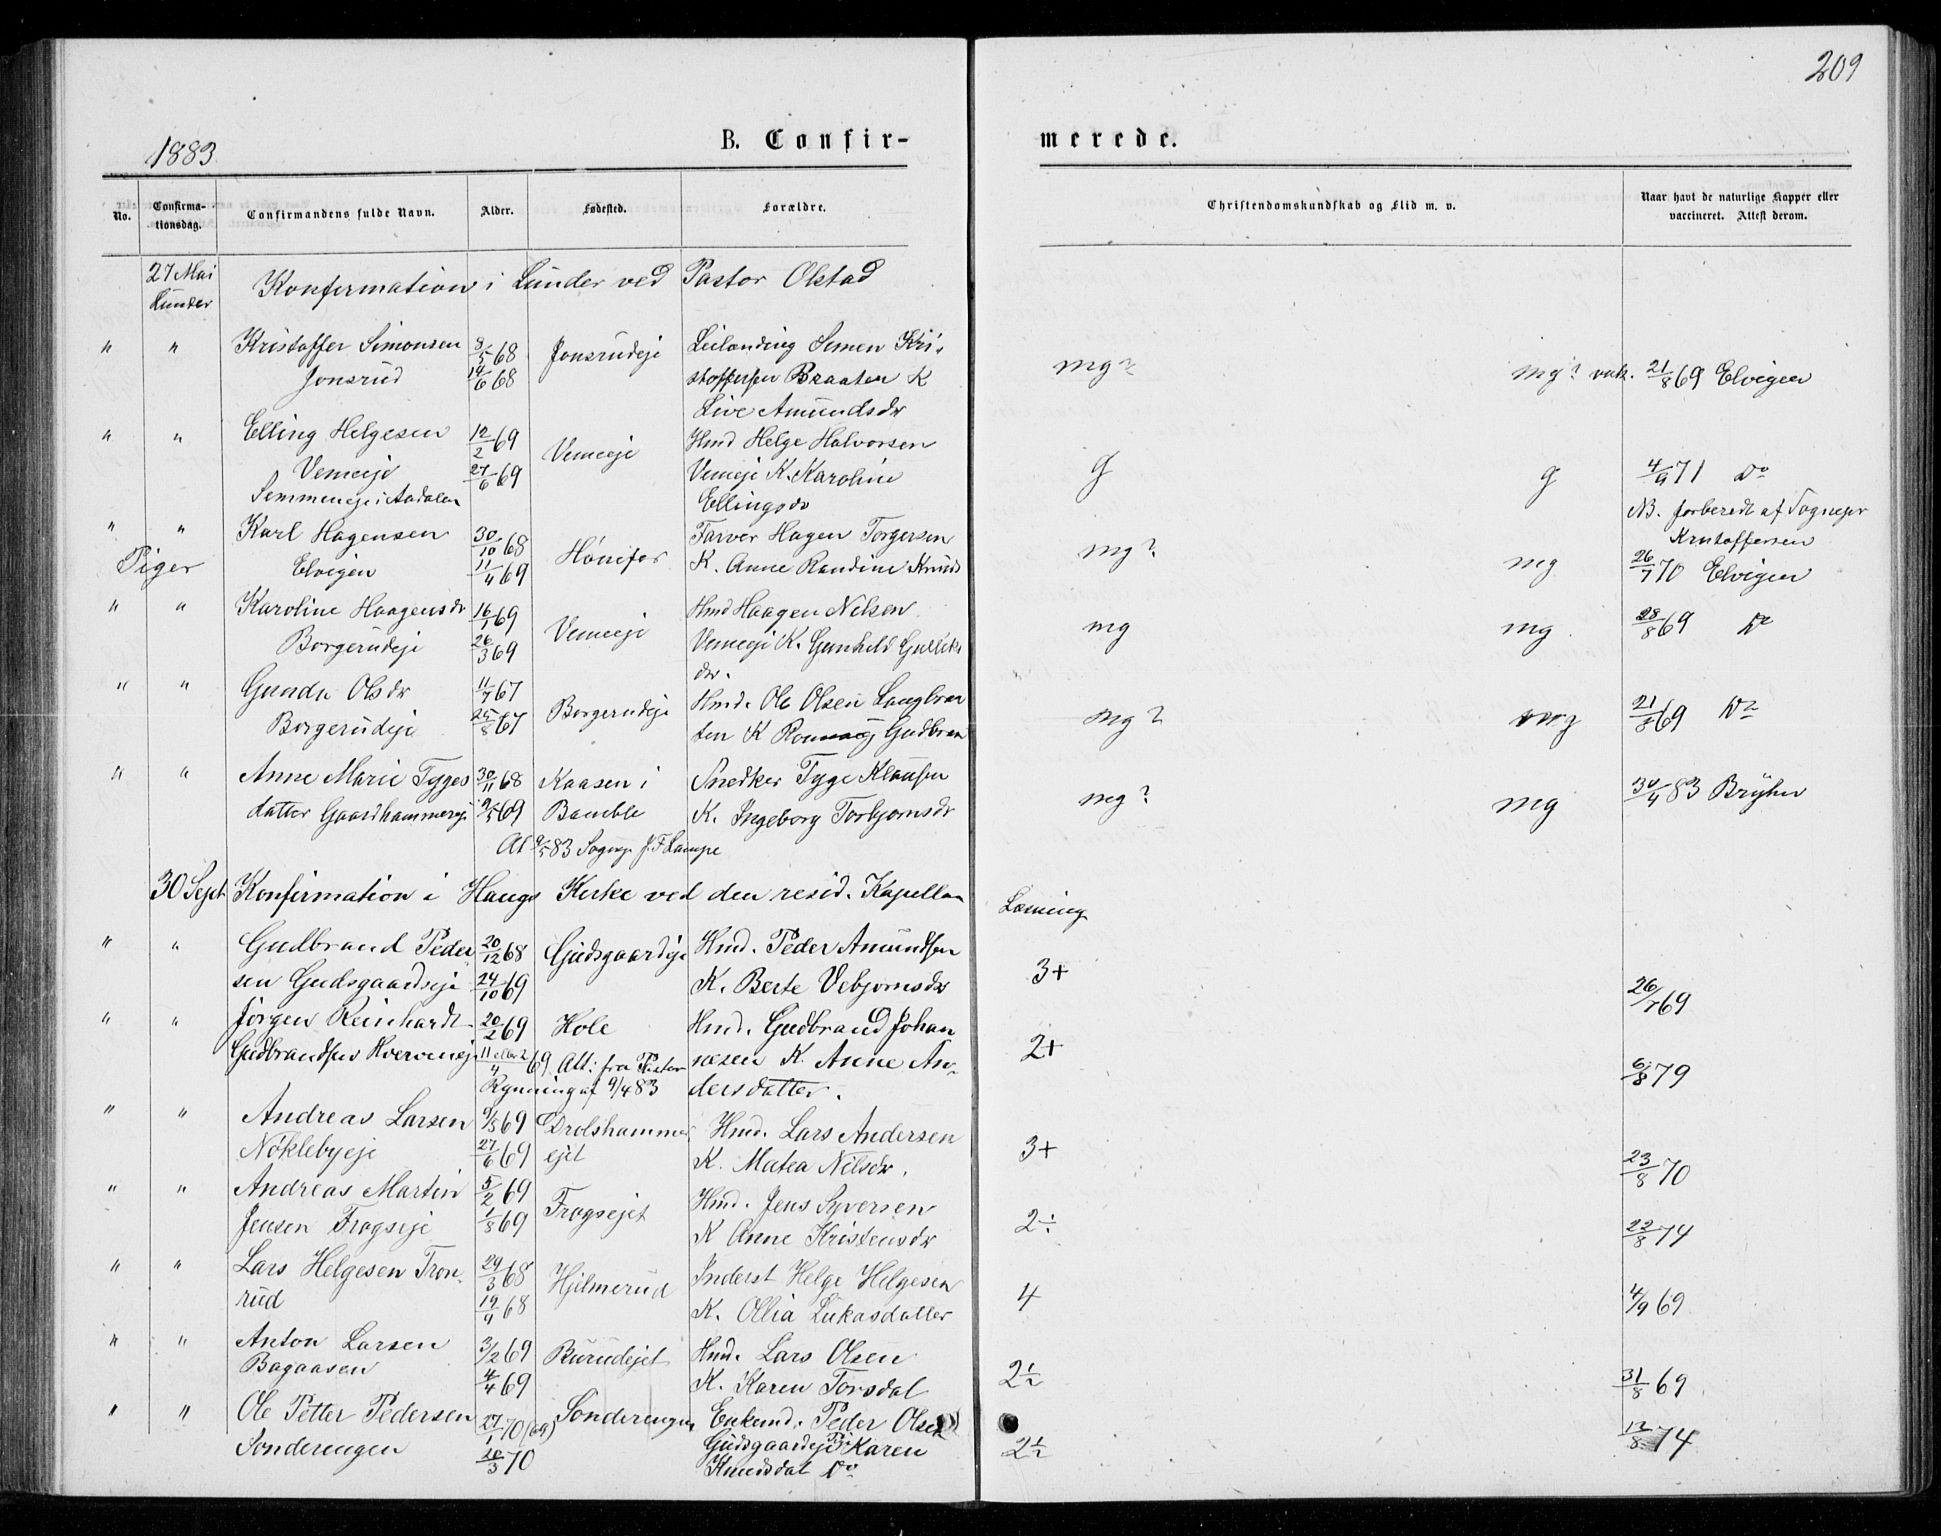 209
1883
B. Confir-
merede.
No.
Confirma-
tionsdag.
Confirmandens fulde Navn.
Alder.
Fødested.
Forældre.
Christendomskundskab og Flid m. v.
Naar havt de naturlige Kopper eller
vaccineret. Attest derom.
27 Mai
Lunder
Konfirmation i Lunder ved Pastor Olstad
" " Kristoffer Simonsen 8/5 68 Jonsrudeje Leilænding Simen Kri-
Jonsrud 14/6 68 stoffersen Braaten K
Live Amundsdr
mg? mg? vak. 21/8 69 Elvigen
" " Elling Helgesen 12/2 69 Vemeeje Hmd Helge Halvorsen
Vemeeje 27/6 69 Vemeje K. Karoline
Semmeneje i Aadalen Ellingsdr
g g 4/9 71 Do
NB. forberedt af Sognepr
Kristoffersen
" " Karl Hagensen 30/10 68 Hönefos Farver Hagen Torgersen
Piger Elvigen 11/4 69 K. Anne Randine Knuds
mg? mg 26/7 70 Elvigen
" " Karoline Haagensdr 16/1 69 Vemeeje Hmd Haagen Nilsen
Borgerudeje 26/3 69 Vemeeje K. Gunhild Gulliks
dr.
mg mg 28/8 69 Do
" " Gunda Olsdr 11/7 67 Borgerudeje Hmd. Ole Olsen Langbraa
Borgerudeje 25/8 67 ten K Ronnaug Gudbran
mg? mg 21/8 69 Do
" " Anne Marie Tyges 30/11 68 Kaasen i Snedker Tyge Klausen
datter Gaardhammereje 9/5 69 Bamble K. Ingeborg Torbjornsdr
At 9/5 83 Sognepr J. F. Lampe
mg? mg 30/4 83 Bryhn
30 Sept Konfirmation i Haugs Kirke ved den resid. Kapellan
Læsning
" " Gudbrand Peder 20/12 68 Gudsgaardeje Hmd. Peder Amundsen
sen Gudsgaardseje 24/10 69 K. Berte Vebjornsdr
3+ 26/7 69
" " Jörgen Reinhardt 20/2 69 Hole Hmd. Gudbrand Johan
Gudbrandsen Hverveneje 11 eller 2/4 69 Att: fra Pastor nesen K. Anne An-
Rynning af 9/4 83 dersdatter.
2+ 6/8 79
" " Andreas Larsen 9/5 69 Drolshammer Hmd. Lars Andersen
Nöklebyeje 27/6 69 ejet K. Matea Nilsdr.
3+ 23/8 70
" " Andreas Martin 5/2 69 Frogsejet Hmd. Jens Syversen
Jensen Frogseje 1/8 69 K Anne Kristensdr
2÷ 22/8 74
" " Lars Helgesen Tron- 29/3 68 Hjelmerud Inderst Helge Helgesen
rud 19/4 68 K. Ollia Lukasdatter
4 4/9 69
" " Anton Larsen 3/2 69 Burudejet Hmd. Lars Olsen
Bagaasen 4/4 69 K. Karen Torsdat
2½ 31/8 69
" " Ole Petter Pedersen 27/1 70 (69) Sonderengen Enkemd. Peder Olsen
Sonderengen 20/3 70 Gudsgaardeje Pi Karen
Knudsdat Do
2½ 12/8 74